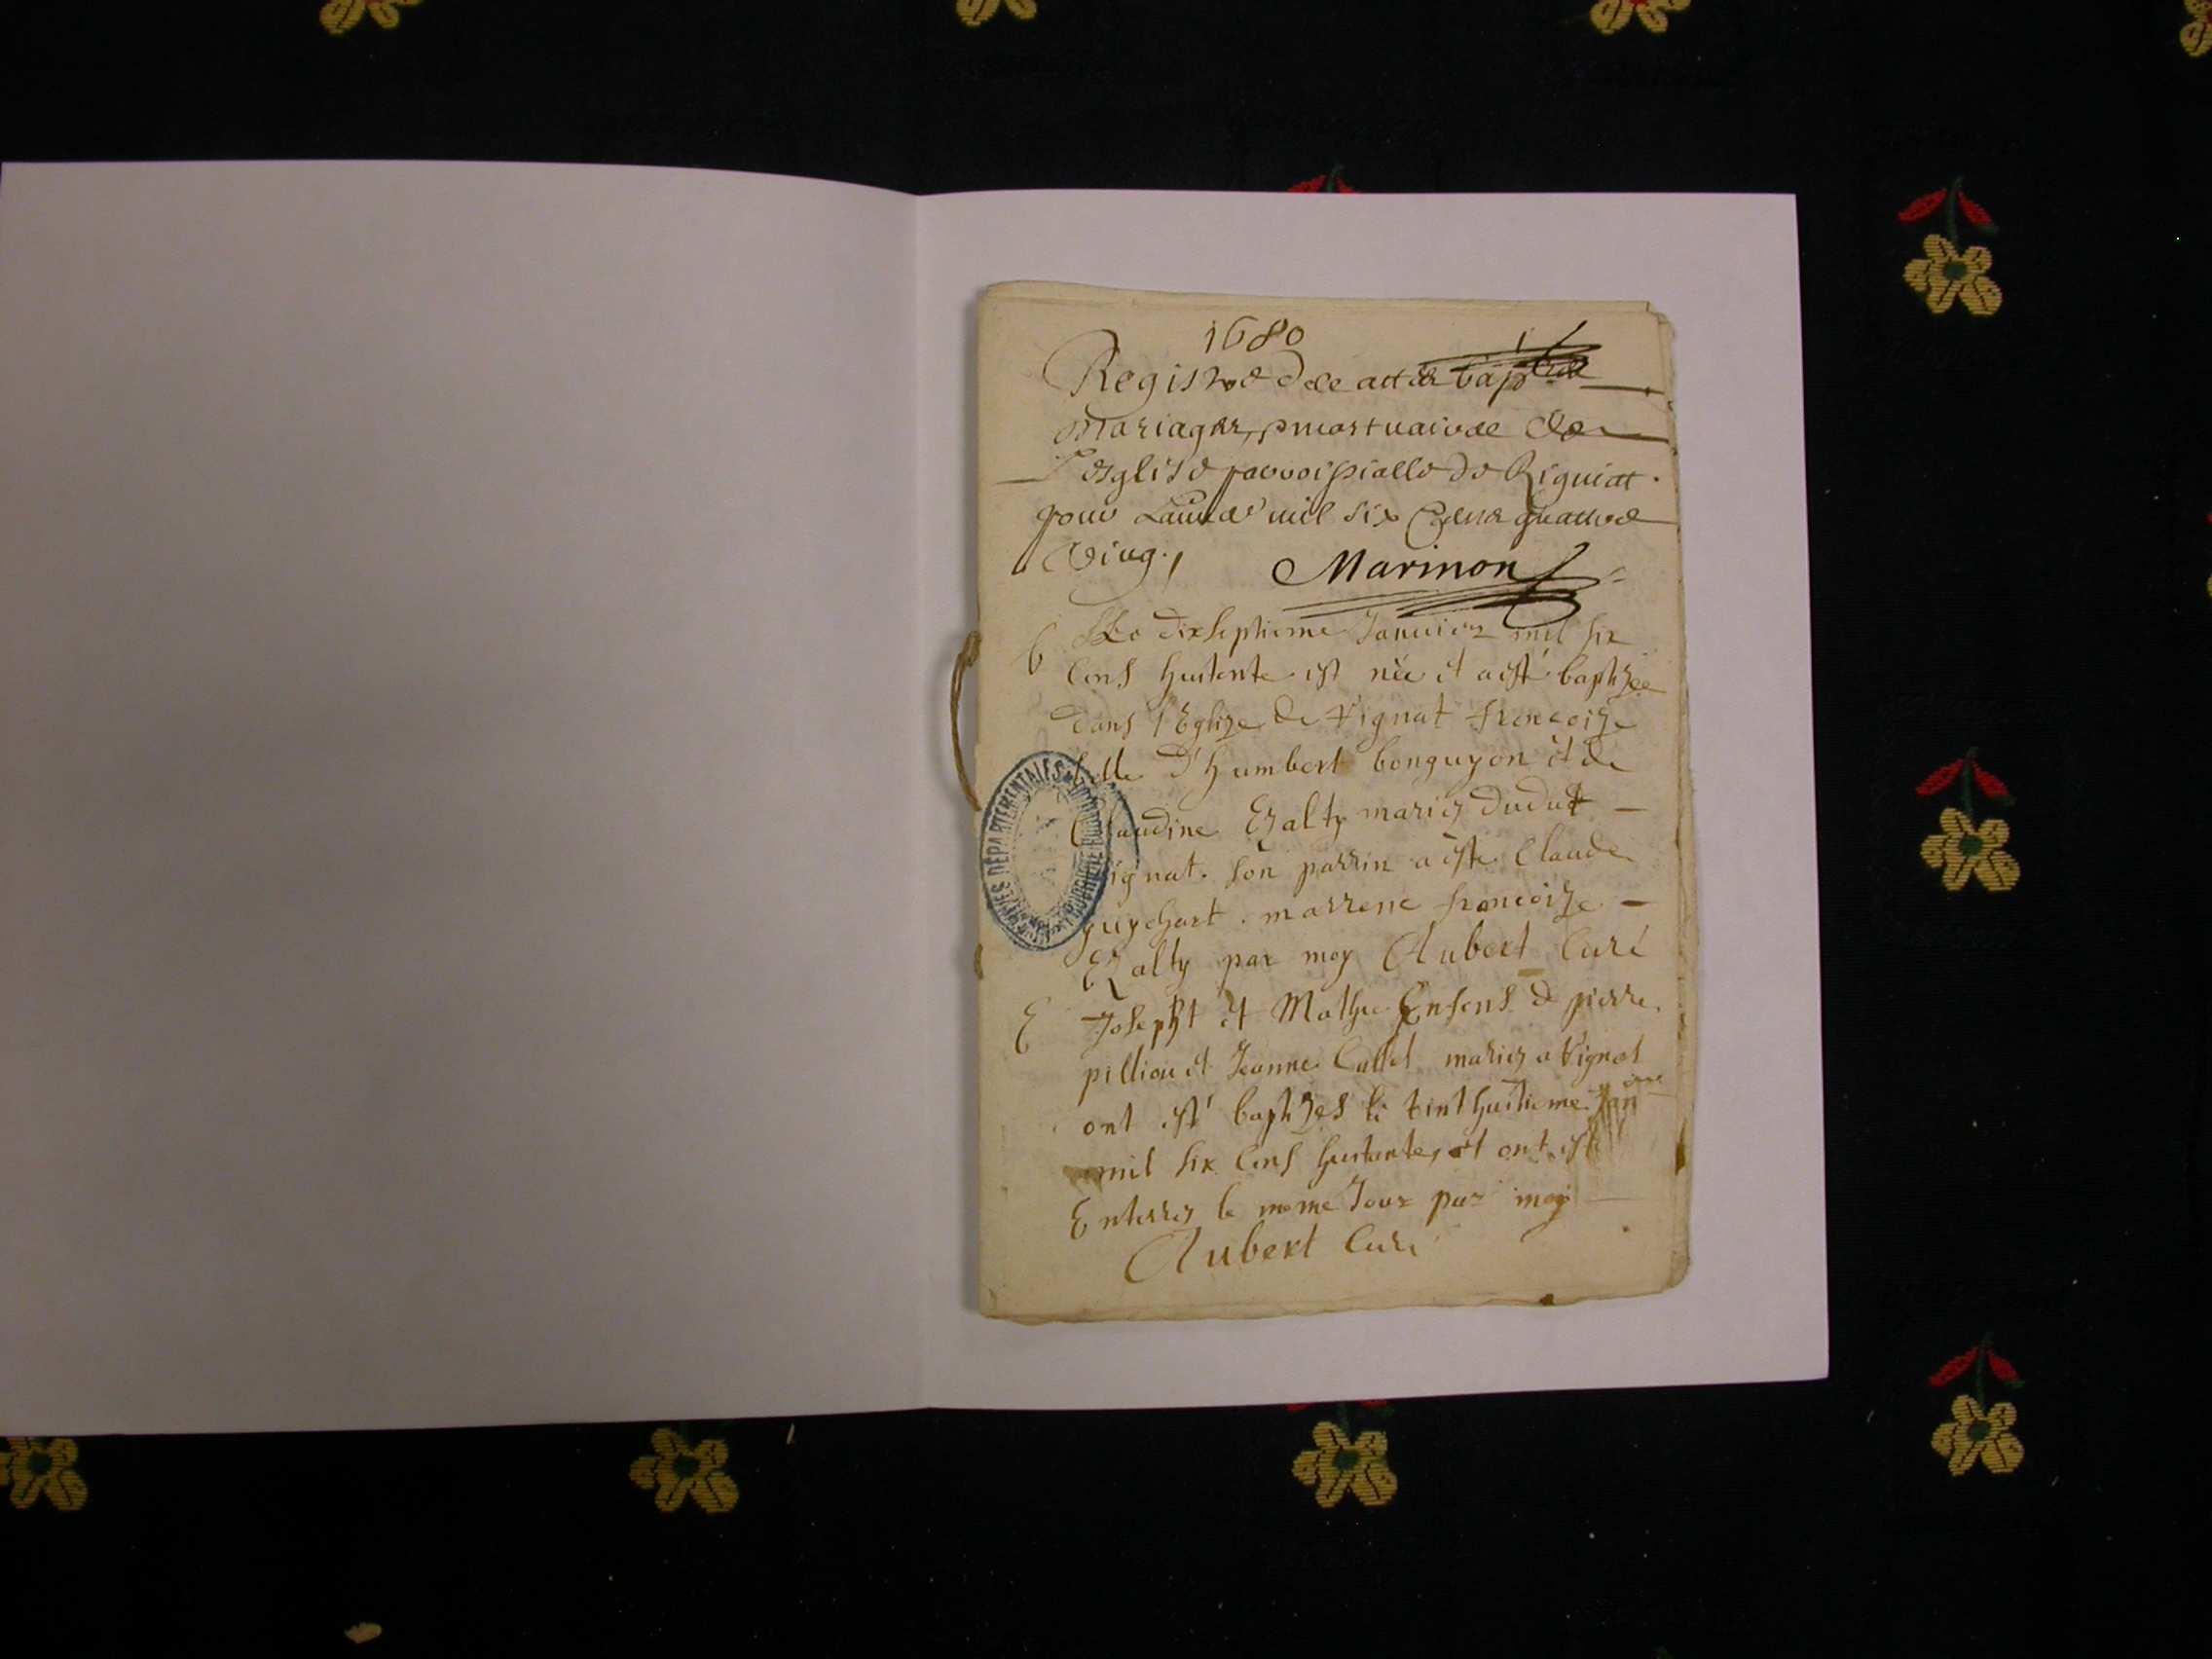 1680
Registre des actes bap
mariages, mortuaires de
L'esglise parroissialle de Rigniat
pour Lannee mil six Cens quattre
Ving.
Marinon
b Le dixseptieme Januier mil six
Cens huitente est née et a esté baptizée
dans l'Eglize de Rignat francoize
fille d'humbert bonguyon et de
Claudine Ezalty mariez dudit
Rignat. son parrin a este Claude
guychart. marrene francoize
Ezalty par moy Aubert Curé
E Josepht et Mathie Enfens de pierre
pilliou et Jeanne Cullet mariez a Rignat
ont esté baptizes le vint huitieme Jan
mil six Cens huitante, et ont esté
Enterrez le meme Jour par moy
Aubert Curé
ARCHIVES DÉPARTEMENTALES